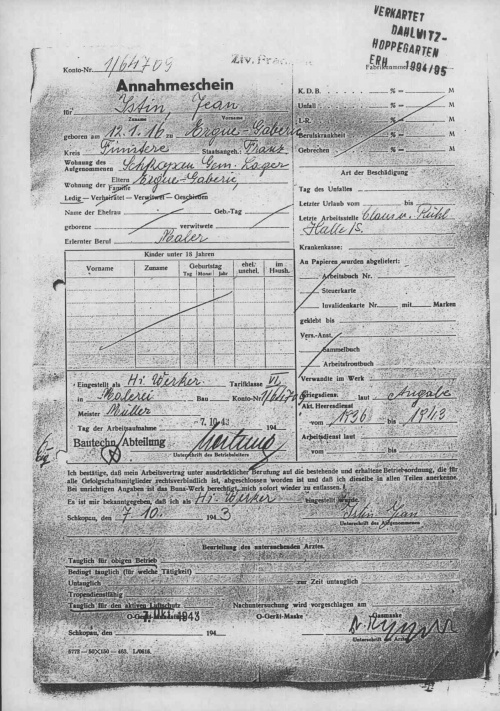 VERKARTET
DAHLWITZ-
HOPPEGARTEN
ERH 1994/95
Konto-Nr. 1/64709
Annahmeschein
für Istin Jean
Zuname Vorname
geboren am 12.1.16, zu Ergue-Gaberic
Kreis Finistere Staatsangeh. Franz.
Wohnung des Aufgenommenen Schkopau Gem. Lager
Wohnung der Eltern Familie Ergue-Gaberic
Ledig — Verheiratet — Verwitwet — Geschieden
Name der Ehefrau Geb.-Tag
geborene verwitwete
Erlernter Beruf Maler
Kinder unter 18 Jahren
Vorname Zuname Geburtstag ehel. uschel. im Haush.
Tag Monat Jahr
Eingestellt als Hi Werker Tarifklasse VI
in Malerei Bau Konto-Nr. 1/64709
Meister Müller
Tag der Arbeitaufnahme -7.10.43 194
Bautechn. Abteilung
Unterschrift des Betriebsleiters
K. D. B. % = M
Unfall % = M
L-R. % = M
Berufskrankheit % = M
Gebrechen % = M
Art der Beschädigung
Tag des Unfalles
Letzter Urlaub vom bis
Letzte Arbeitsstelle Claus v. Rühl
Halle/S.
Krankenkasse:
An Papieren wurden abgeliefert:
Arbeitsbuch Nr.
Steuerkarte
Invalidenkarte Nr. mit Marken
geklebt bis
Vers.-Anst.
Sammelbuch
Arbeitsfrontbuch
Verwandte im Werk
Kriegsdienst laut Angabe
Akt. Heeresdienst
vom 1936 bis 1943
Arbeitsdienst laut
vom bis
Ich bestätige, daß mein Arbeitsvertrag unter ausdrücklicher Berufung auf die bestehende und erhaltene Betriebsordnung, die für
alle Gefolgschaftsmitglieder rechtsverbindlich ist, abgeschlossen worden ist und daß ich dieselbe in allen Teilen anerkenne.
Bei unrichtigen Angaben ist das Buna-Werk berechtigt, mich sofort wieder zu entlassen.
Es ist mir bekanntgegeben, daß ich als Hi Werker eingestellt wurde.
Schkopau, den 7.10. 1943 Istin Jean
Unterschrift des Aufgenommenen
Beurteilung des untersuchenden Arztes.
Tauglich für obigen Betrieb
Bedingt tauglich (für welche Tätigkeit)
Untauglich zur Zeit untauglich
Tropendienstfähig
Tauglich für den aktiven Luftschutz Nachuntersuchung wird vorgeschlagen am
O-Gerät-Maske Gasmaske
7. OKT. 1943
Schkopau, den 194
Unterschrift des Arztes